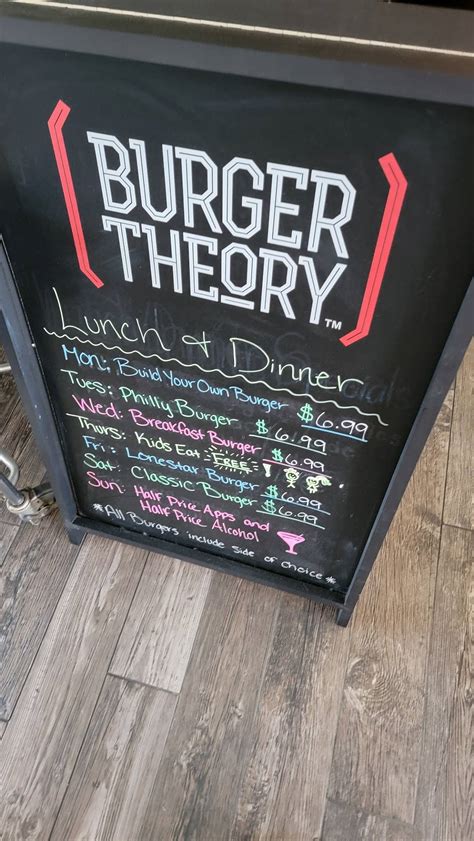 BURGER
THEORY™
Lunch & Dinner
Mon: Build Your Own Burger $6.99
Tues: Philly Burger $6.99
Wed: Breakfast Burger $6.99
Thurs: Kids Eat FREE!
Fri: Lonestar Burger $6.99
Sat: Classic Burger $6.99
Sun: Half Price Apps and
Half Price Alcohol
*All Burgers include side of choice*